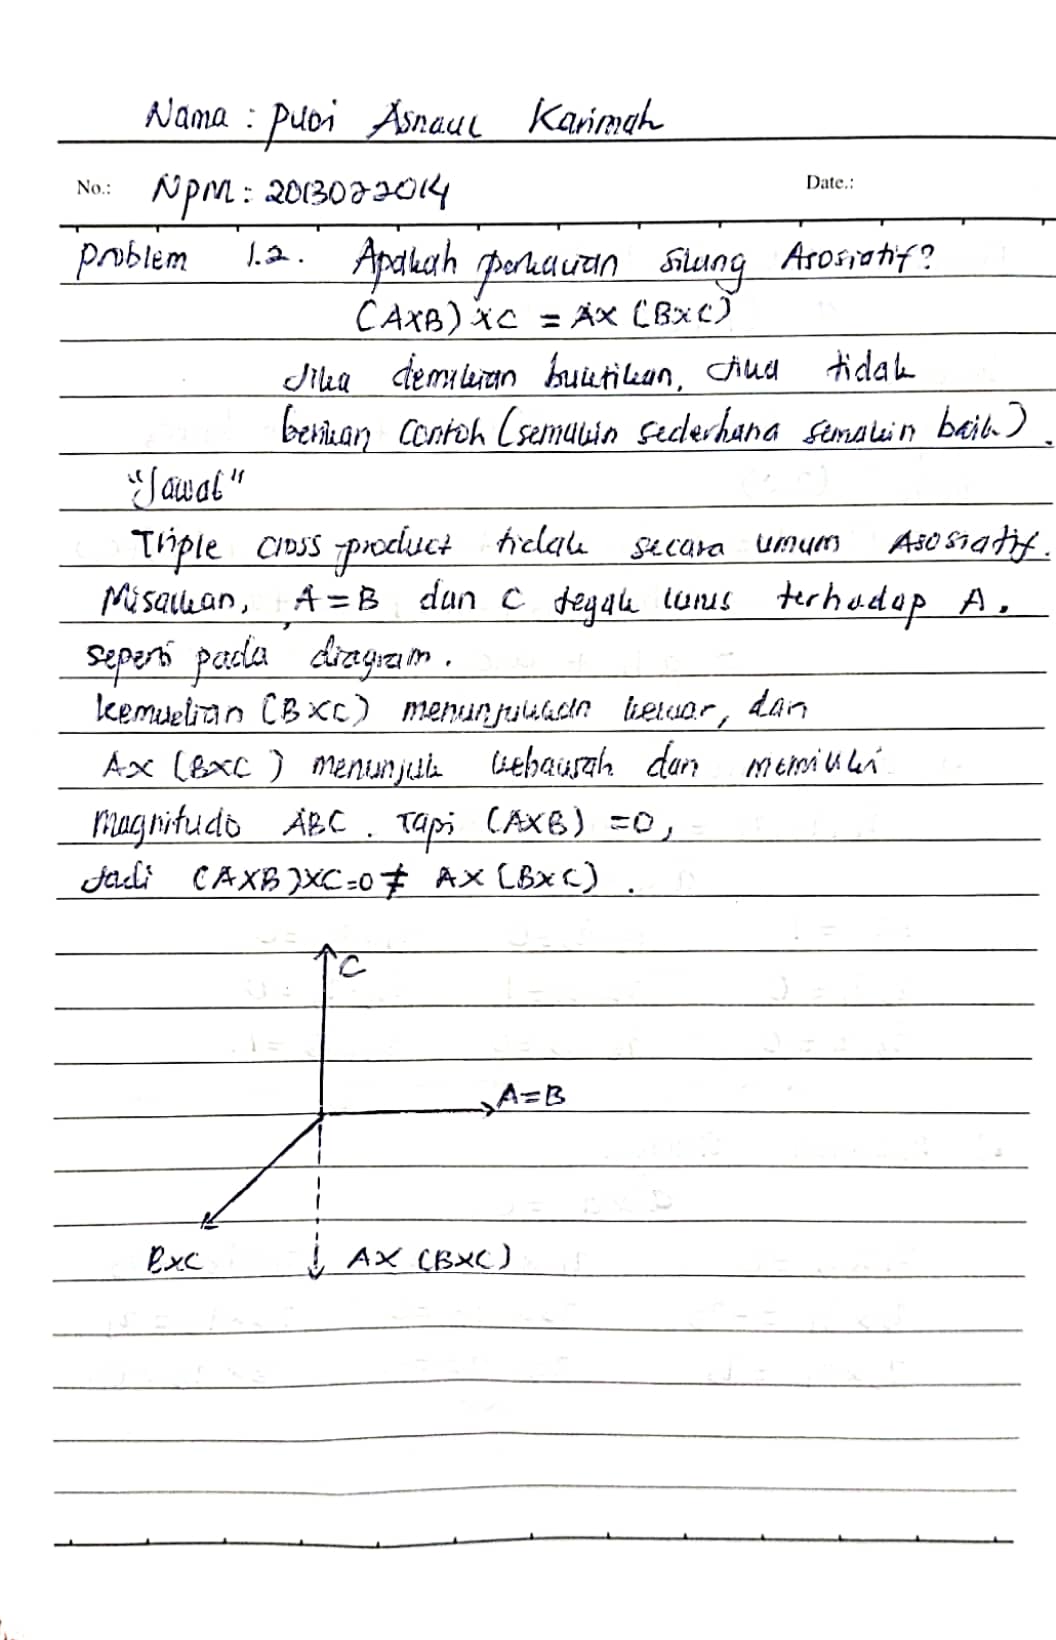 Nama : Putri Asnaul Karimah
No.: Npm : 2013022014 Date.:
Problem 1.2. Apakah perkalian silang Asosiatif?
(AXB) XC = AX (BXC)
Jika demikian buktikan, Jika tidak
berikan contoh (semakin sederhana semakin baik).
"Jawab"
Triple cross product tidak secara umum Asosiatif.
Misalkan, A=B dan C tegak lurus terhadap A.
seperti pada diagram.
kemudian (BXC) menunjukkan keluar, dan
AX (BXC) menunjuk kebawah dan memiliki
magnitudo ABC. Tapi (AXB) =0,
Jadi (AXB)XC=0≠ AX (BXC).
C
A=B
BXC
AX (BXC)